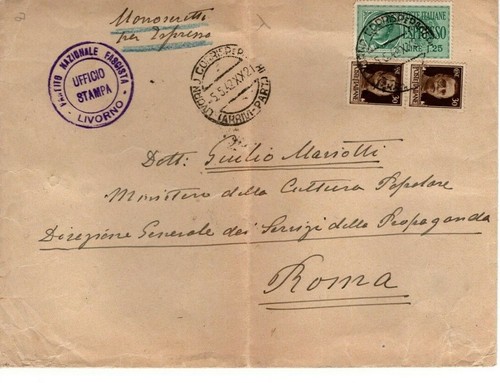 Manoscritti
per Espresso
PARTITO NAZIONALE FASCISTA
UFFICIO
STAMPA
LIVORNO
LIVORNO CORRISPER
(ARRIVI E PART
5.5.42 XX 21
POSTE ITALIANE
ESPRESSO
LIRE 1,25
30
30
Dott: Giulio Mariotti
Ministero della Cultura Popolare
Direzione Generale dei Servizi della Propaganda
Roma